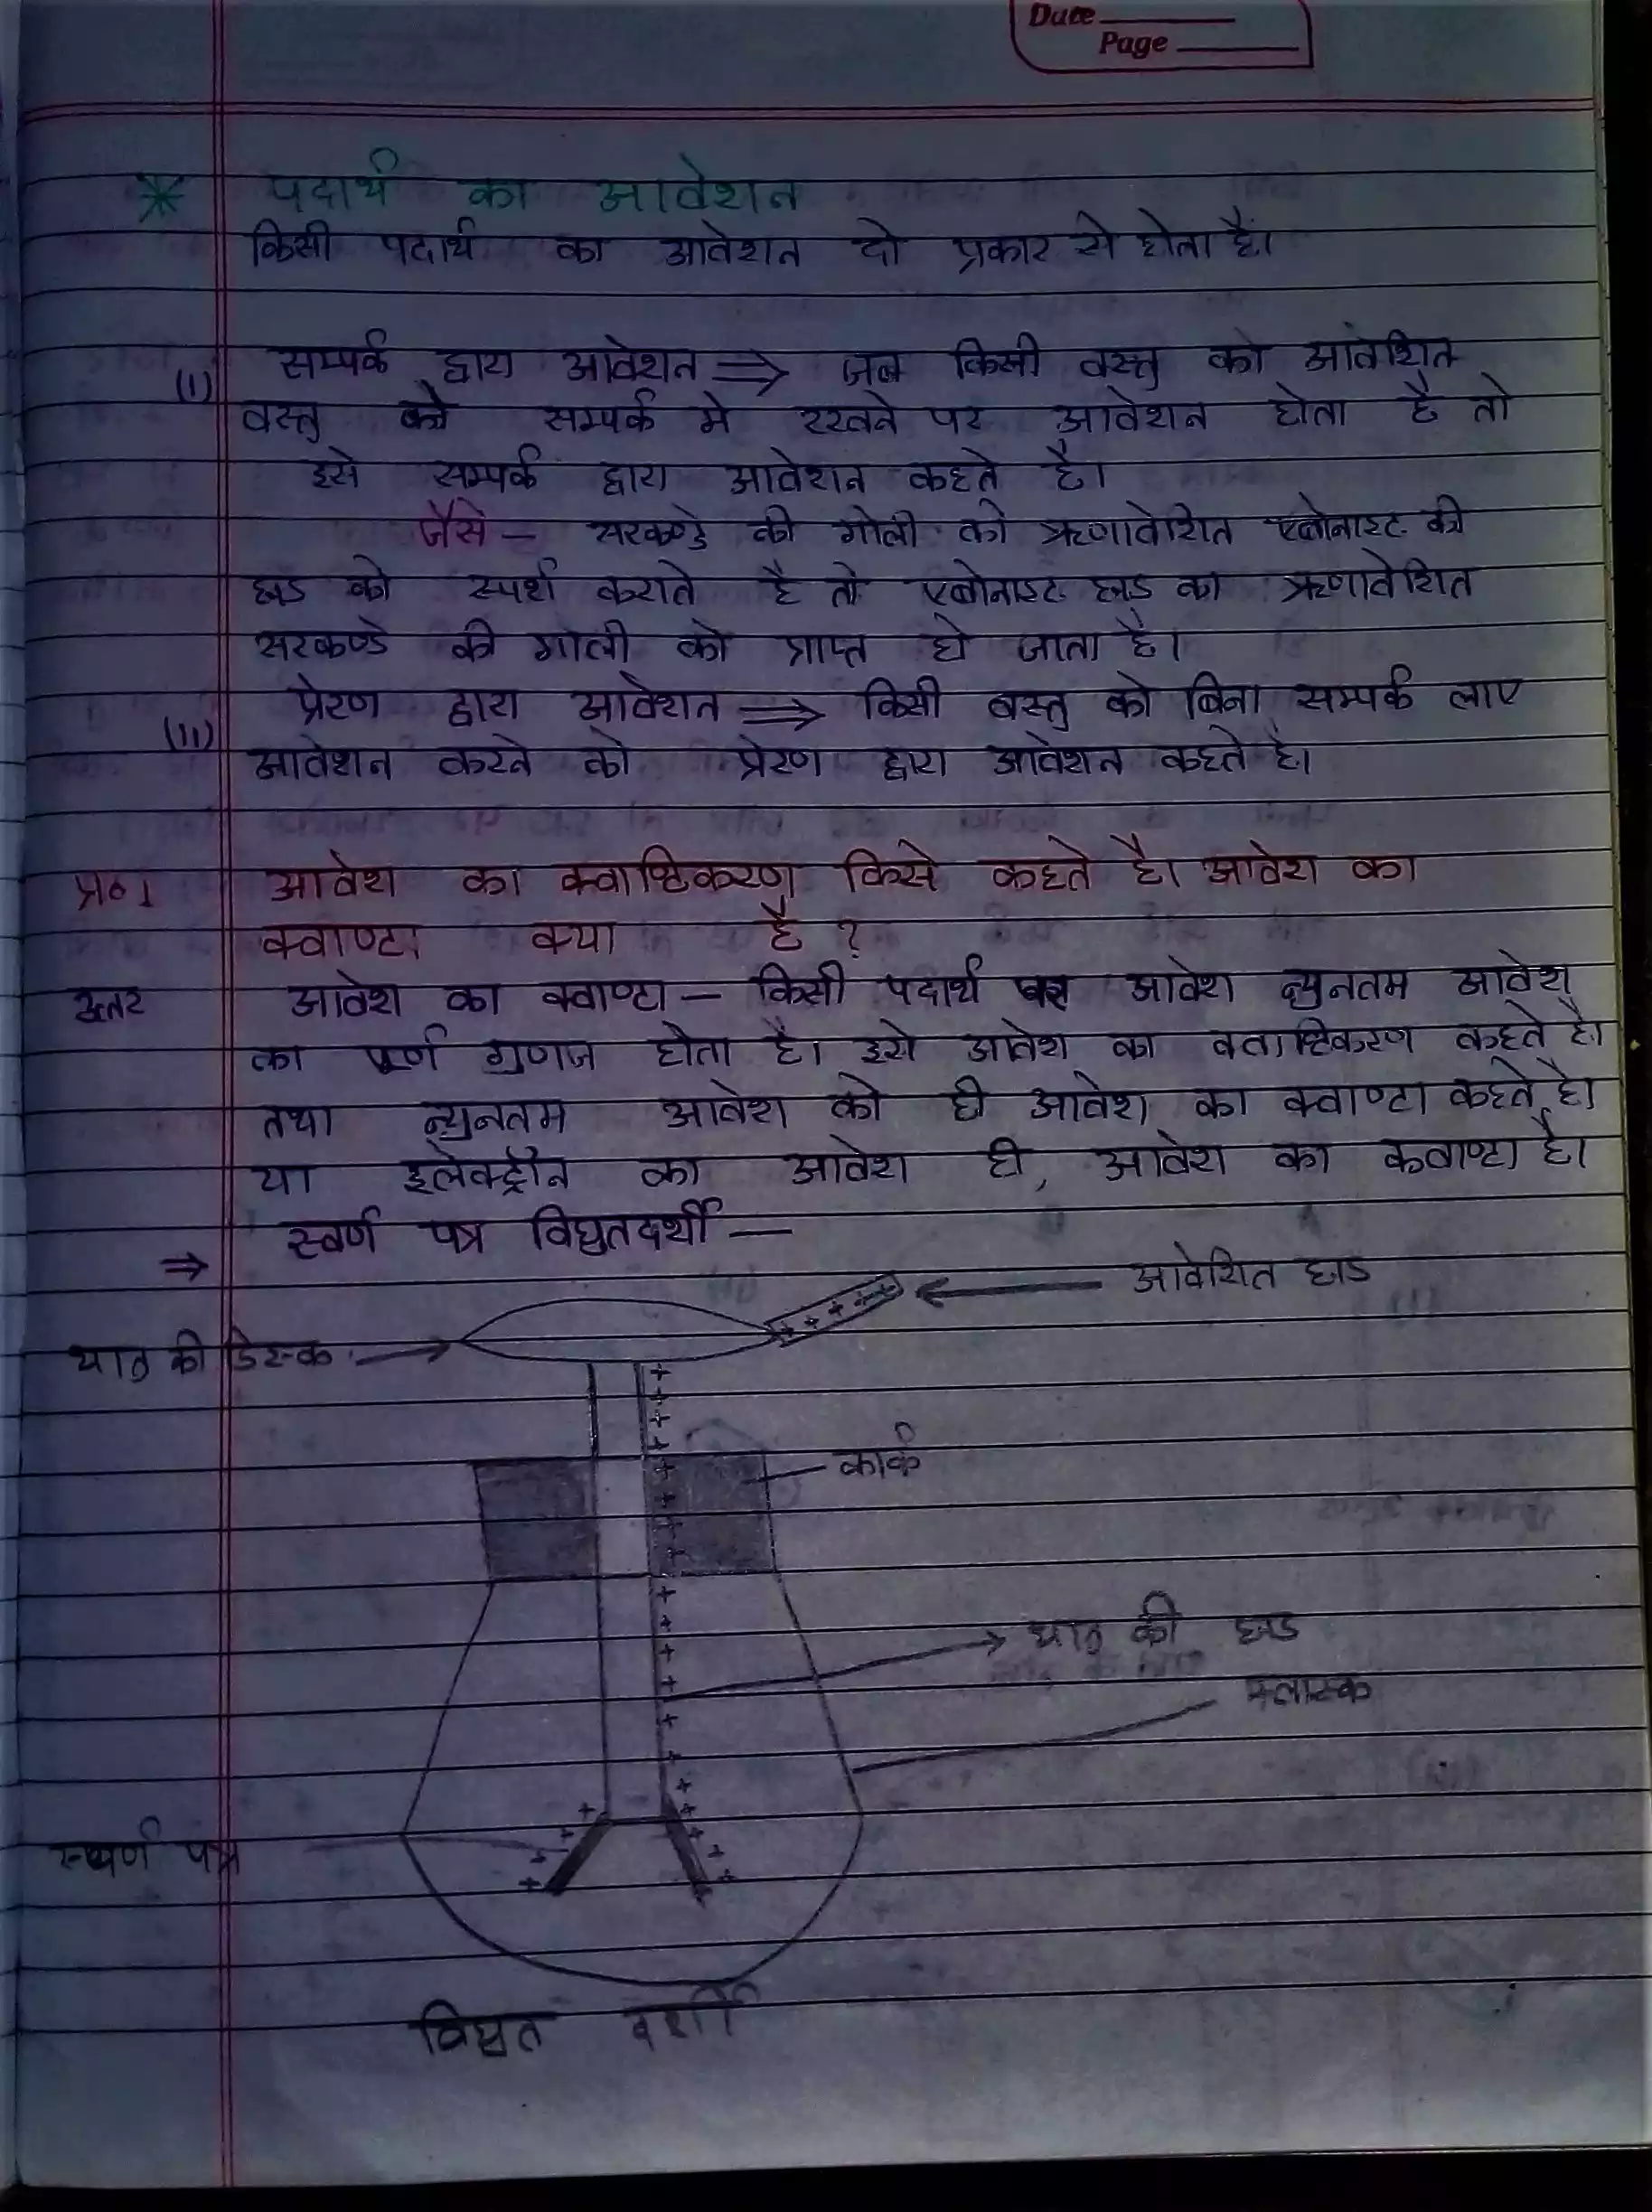 Date
Page
* पदार्थ का आवेशन
किसी पदार्थ का आवेशन दो प्रकार से होता है।
(i) सम्पर्क द्वारा आवेशन ⇒ जब किसी वस्तु को आवेशित
वस्तु के सम्पर्क मे रखने पर आवेशन होता है तो
इसे सम्पर्क द्वारा आवेशन कहते है।
जैसे – सरकण्डे की गोली को ऋणावेशित एबोनाइट की
छड को स्पर्श कराते है तो एबोनाइट छड का ऋणावेशित
सरकण्डे की गोली को प्राप्त हो जाता है।
(ii) प्रेरण द्वारा आवेशन ⇒ किसी वस्तु को बिना सम्पर्क लाए
आवेशन करने को प्रेरण द्वारा आवेशन कहते है।
प्र०1 आवेश का क्वाण्टिकरण किसे कहते है। आवेश का
क्वाण्टा क्या है ?
उत्तर आवेश का क्वाण्टा – किसी पदार्थ पर आवेश न्युनतम आवेश
का पूर्ण गुणज होता है। इसे आवेश का क्वाण्टिकरण कहते है।
तथा न्युनतम आवेश को ही आवेश का क्वाण्टा कहते है।
या इलेक्ट्रौन का आवेश ही, आवेश का कवाण्टा है।
⇒ स्वर्ण पत्र विद्युतदर्शी –
आवेशित छड
धातु की डिस्क
+ + + + +
कार्क
धातु की छड
फ्लास्क
स्वर्ण पत्र
विद्युत दर्शी